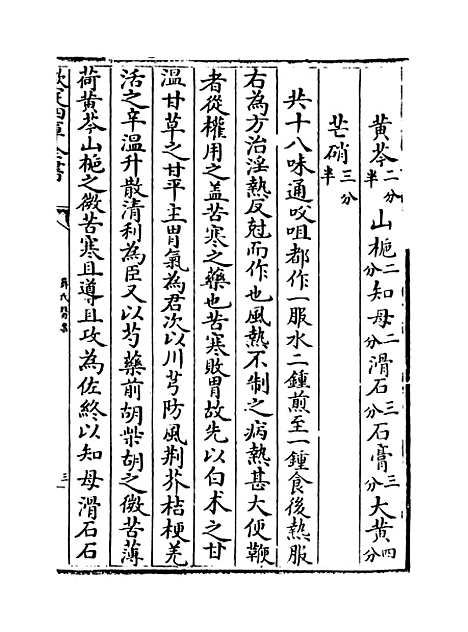 黃芩二分半 山梔二分 知母二分 滑石三分 石膏三分 大黃四分
芒硝三分半
共十八味通㕮咀都作一服水二鍾煎至一鍾食後熱服
右為方治淫熱反尅而作也風熱不制之病熱甚大便鞭
者從權用之蓋苦寒之藥也苦寒敗胃故先以白朮之甘
溫甘草之甘平主胃氣為君次以川芎防風荆芥桔梗羌
活之辛溫升散清利為臣又以芍藥前胡柴胡之微苦薄
荷黃芩山梔之微苦寒且導且攻為佐終以知母滑石石
欽定四庫全書
薛氏醫案
三